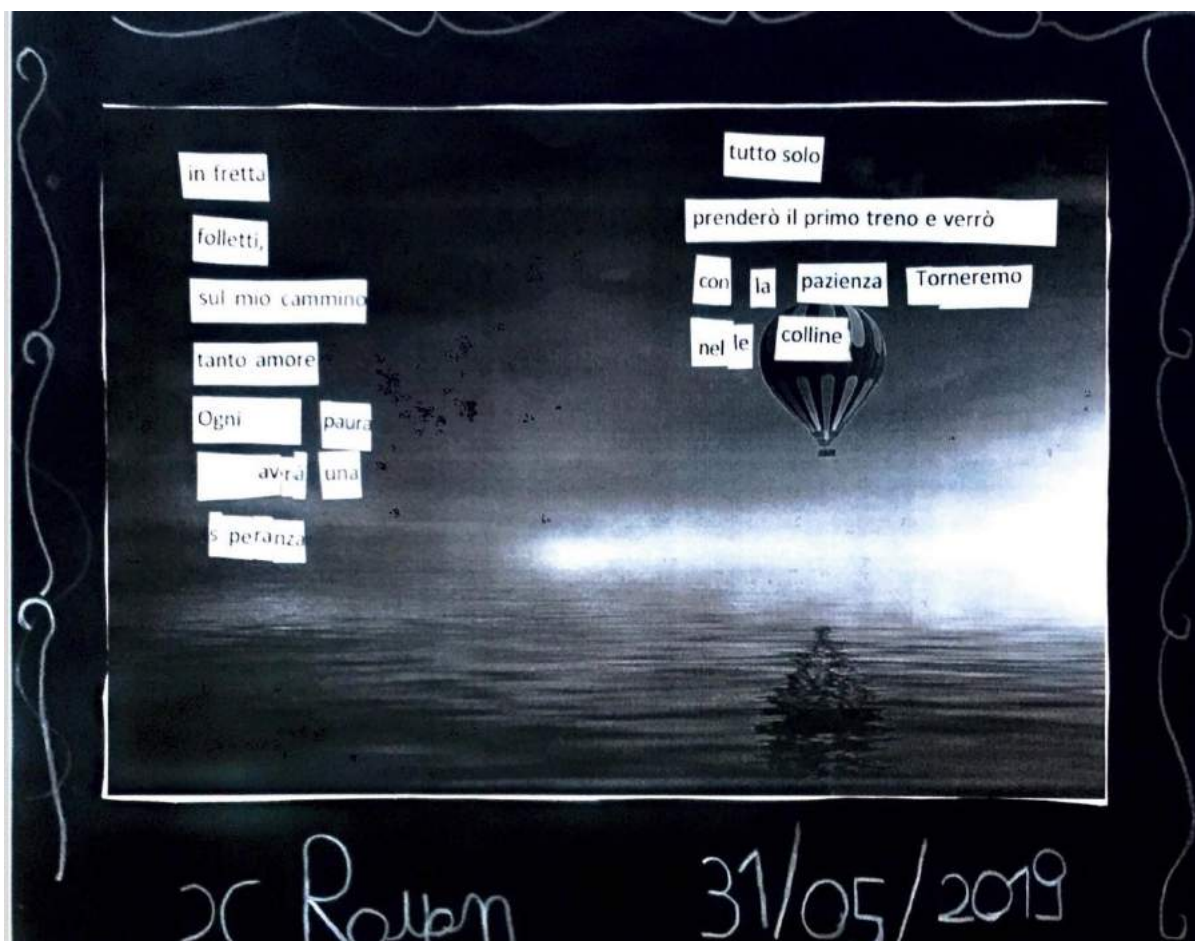 in fretta
folletti,
sul mio cammino
tanto amore
Ogni paura
avrà una
s peranza
tutto solo
prenderò il primo treno e verrò
con la pazienza Torneremo
nel le colline
31/05/2019